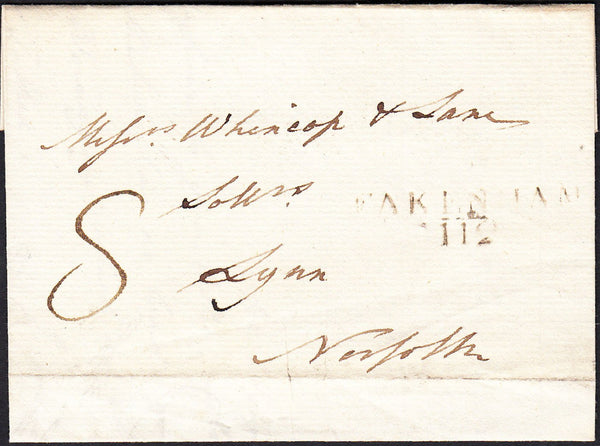 Messrs. Whincop & Lane
Sollrs.
FAKENHAM
112
8
Lynn
Norfolk